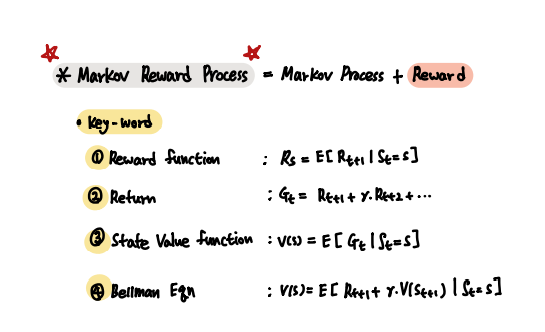 * Markov Reward Process = Markov Process + Reward
• Key-word
① Reward function : Rs = E[ Rt+1 | St=s ]
② Return : Gt = Rt+1 + γ.Rt+2 + ...
③ State Value function : V(s) = E[ Gt | St=s ]
④ Bellman Eqn : V(s) = E[ Rt+1 + γ.V(St+1) | St=s ]